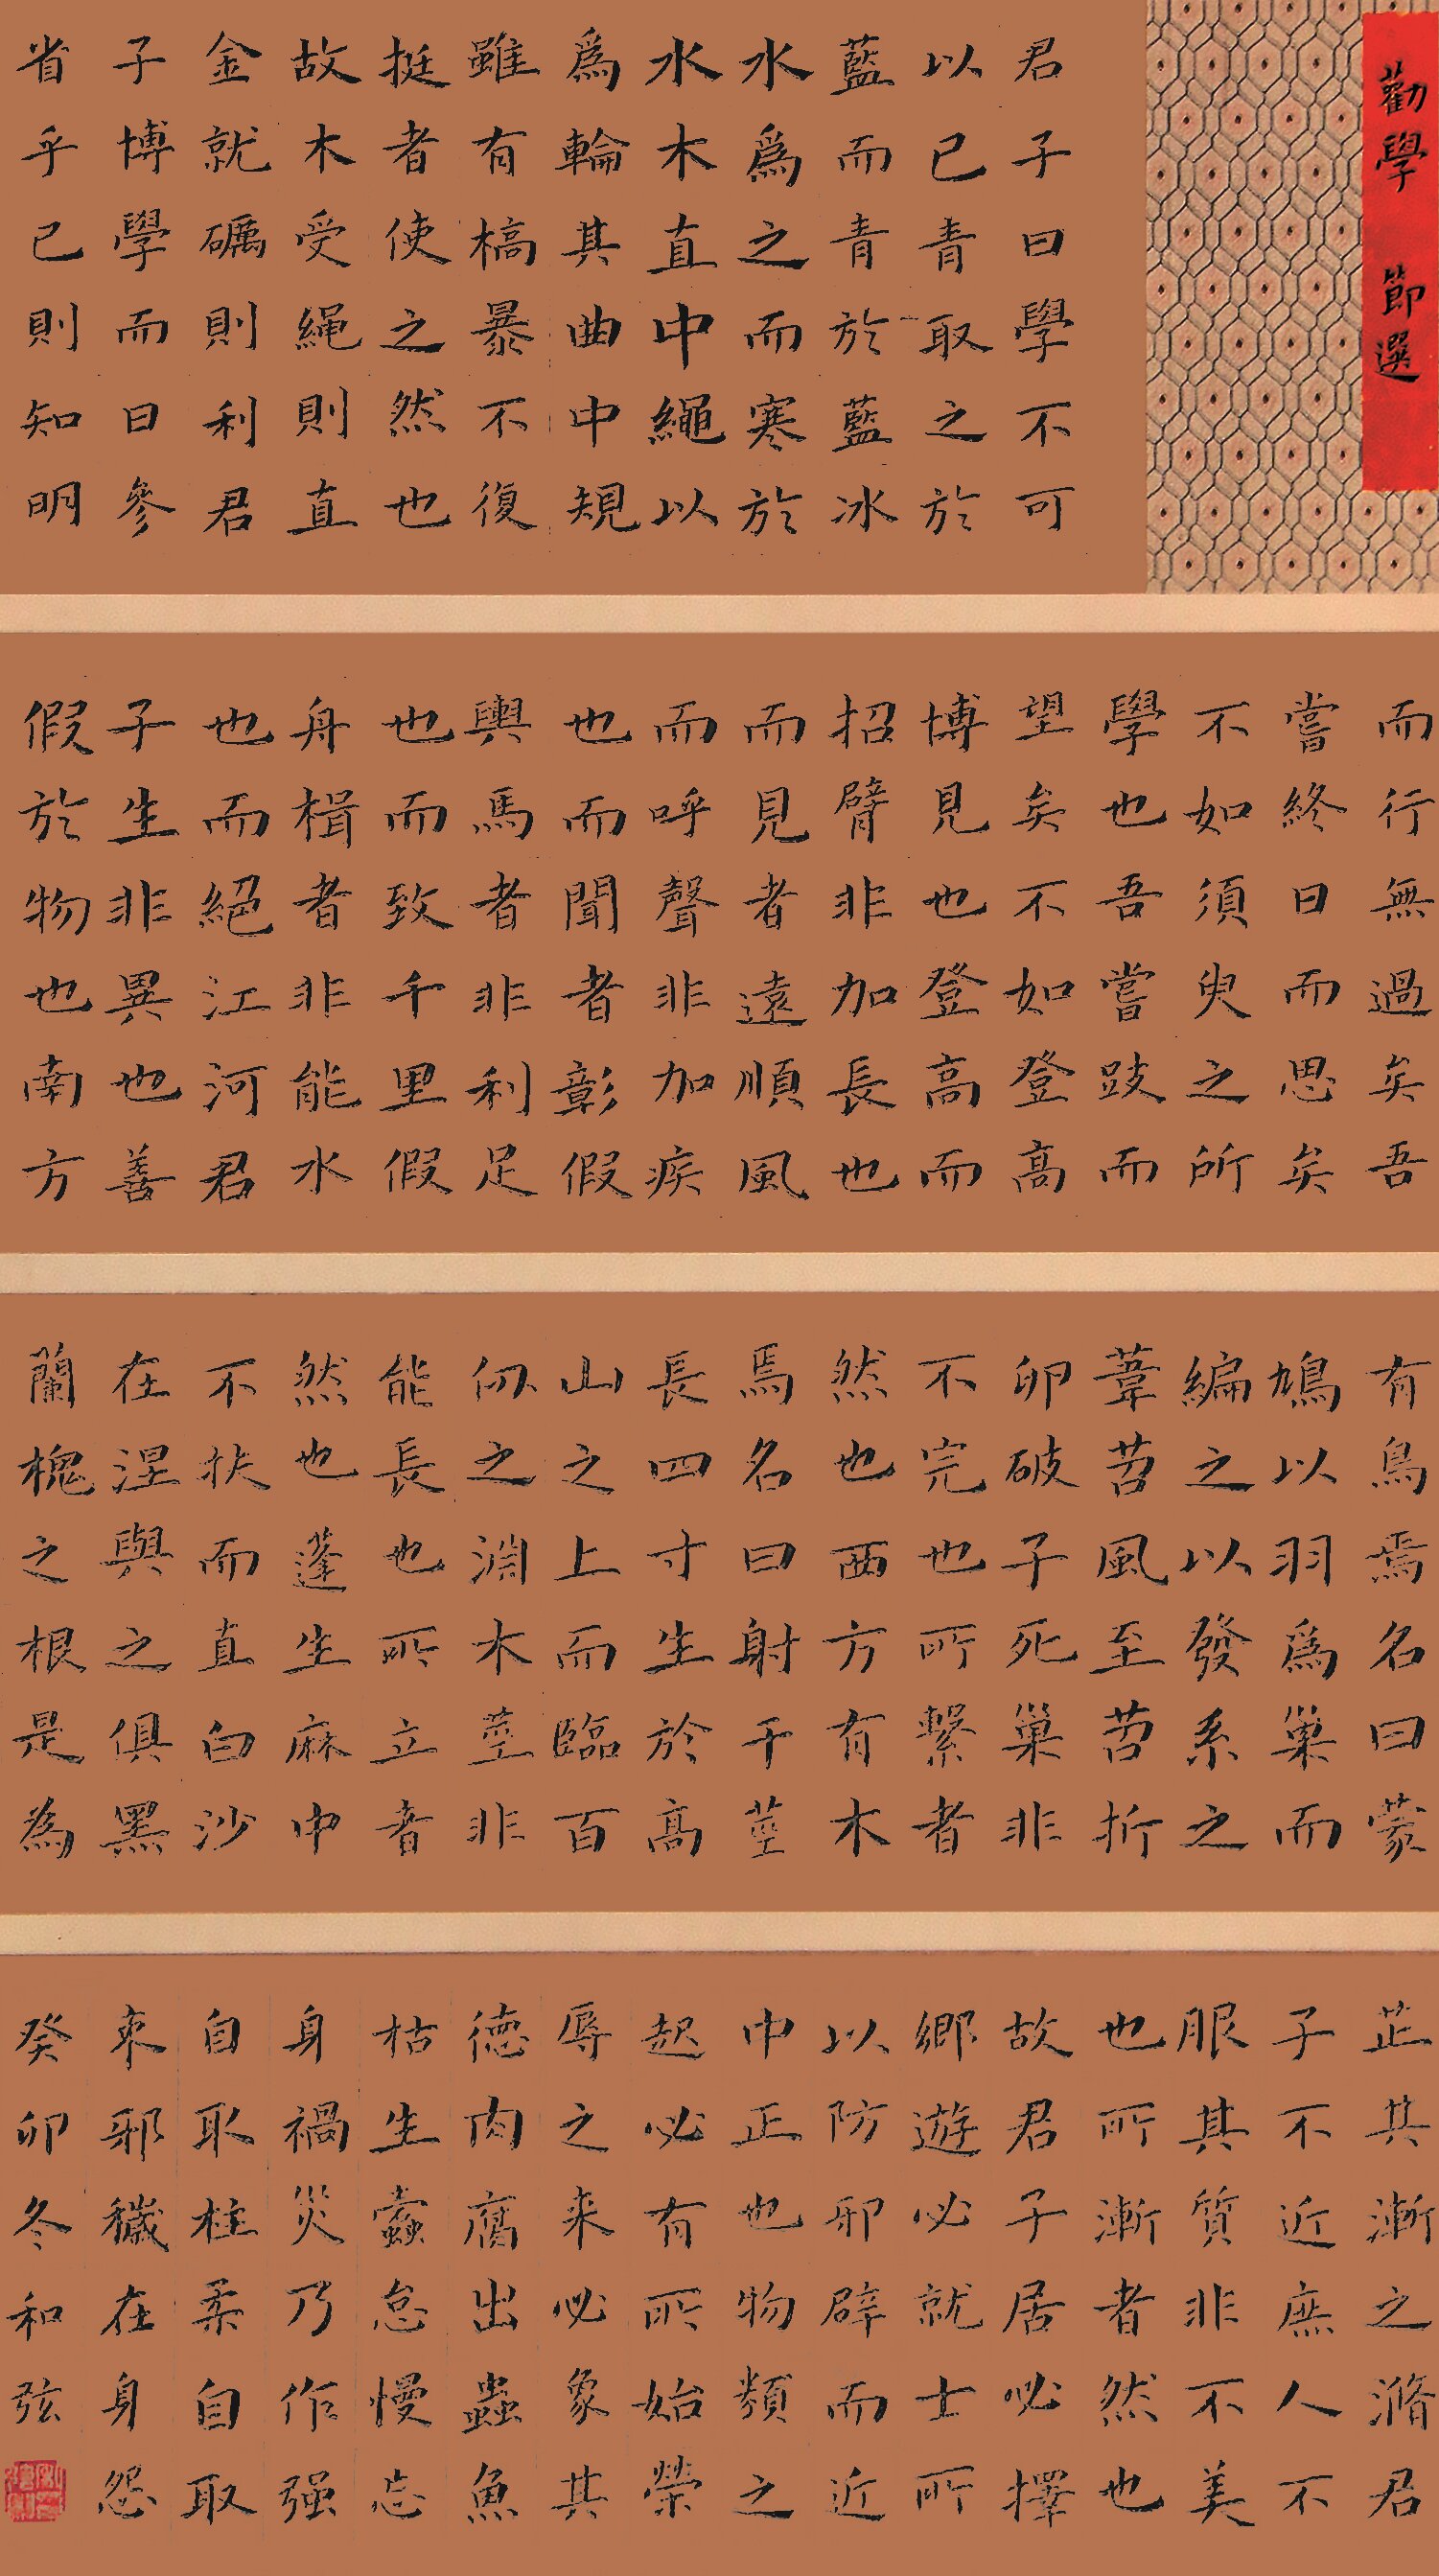 勸學 節選
君子曰學不可
以已青取之於
藍而青於藍冰
水為之而寒於
水木直中繩以
為輪其曲中規
雖有槁暴不復
挺者使之然也
故木受繩則直
金就礪則利君
子博學而日參
省乎己則知明
而行無過矣吾
嘗終日而思矣
不如須臾之所
學也吾嘗跂而
望矣不如登高
博見也登高而
招臂非加長也
而見者遠順風
而呼聲非加疾
也而聞者彰假
輿馬者非利足
也而致千里假
舟楫者非能水
也而絕江河君
子生非異也善
假於物也南方
有鳥焉名曰蒙
鳩以羽為巢而
編之以發系之
葦苕風至苕折
卵破子死巢非
不完也所繫者
然也西方有木
焉名曰射干莖
長四寸生於高
山之上而臨百
仞之淵木莖非
能長也所立者
然也蓬生麻中
不扶而直白沙
在涅與之俱黑
蘭槐之根是為
芷其漸之滫君
子不近庶人不
服其質非不美
也所漸者然也
故君子居必擇
鄉遊必就士所
以防邪辟而近
中正也物類之
起必有所始榮
辱之來必象其
德肉腐出蟲魚
枯生蠹怠慢忘
身禍災乃作强
自取柱柔自取
束邪穢在身怨
癸卯冬和弦